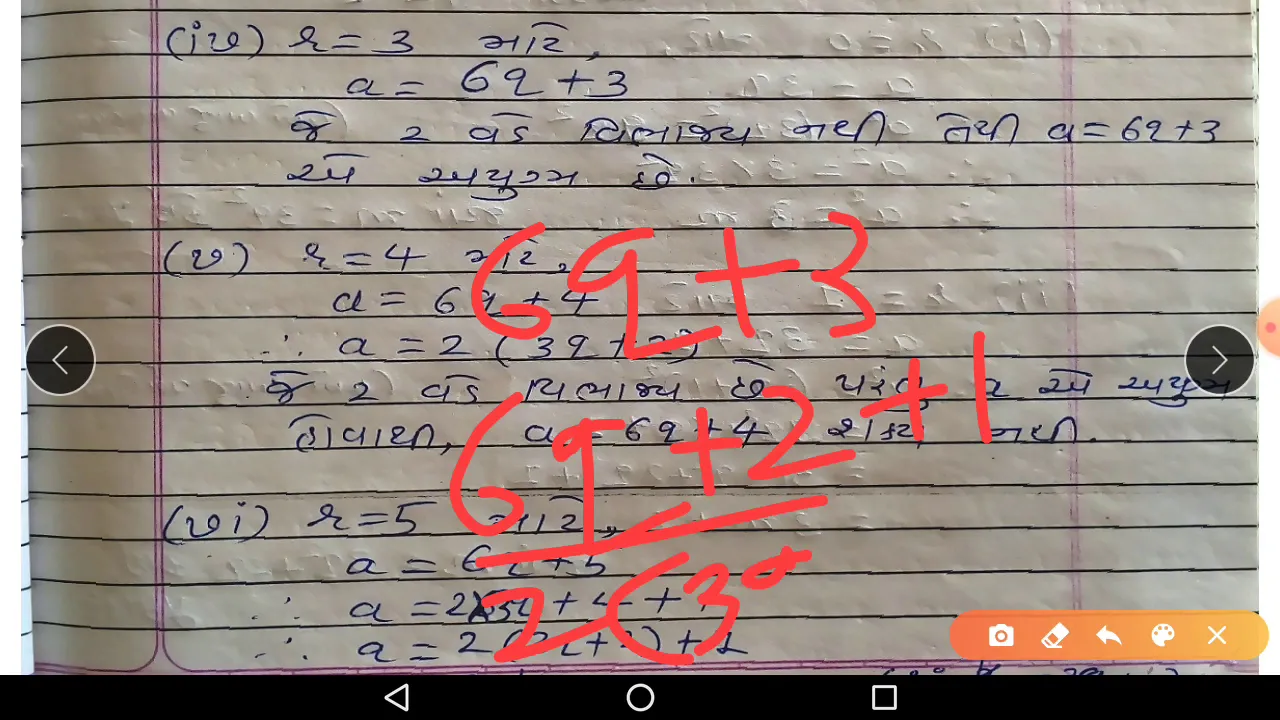 (iv) r = 3 માટે,
a = 6q + 3
જે 2 વડે વિભાજ્ય નથી તેથી a = 6q + 3
એ અયુગ્મ છે.
(v) r = 4 માટે,
a = 6q + 4
∴ a = 2 (3q + 2)
જે 2 વડે વિભાજ્ય છે એ અયુગ્મ
હોવાથી, a = 6q + 4 શક્ય નથી.
(vi) r = 5 માટે,
a = 6q + 5
∴ a = 2
∴ a = 2 ( + ) + 1
6q + 3
6q + 2 + 1
2 (3q